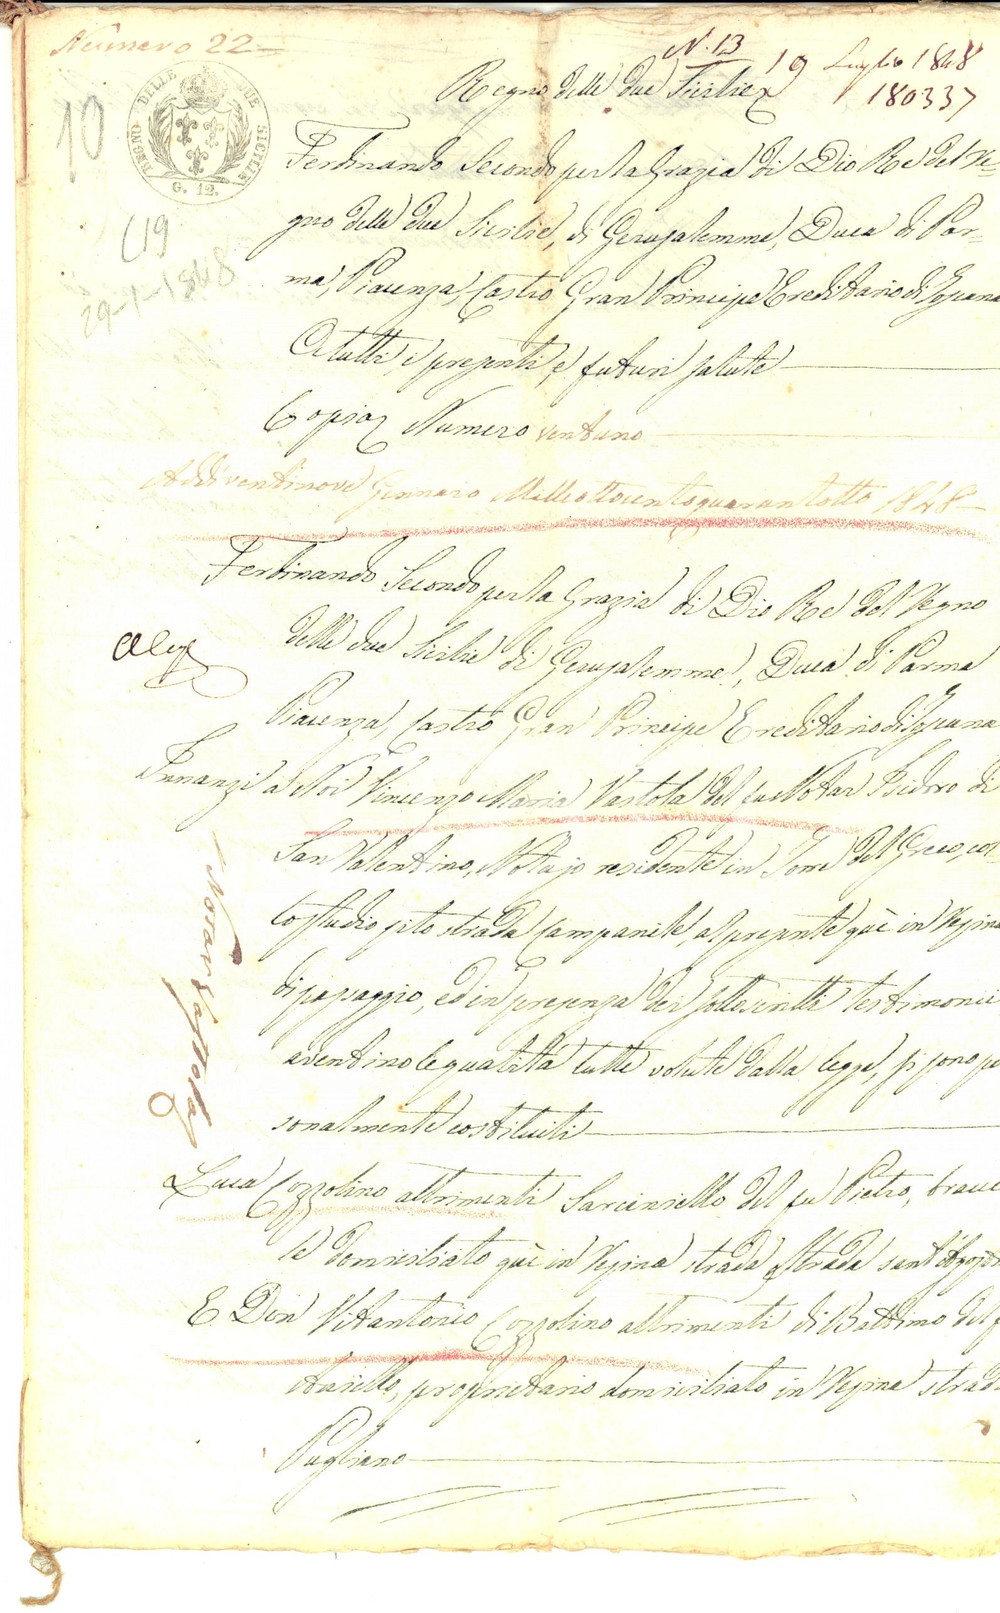 Numero 22
N. 13
19 Luglio 1848
180337
10
REGNO DELLE DUE SICILIE
G. 12.
Regno delle due Sicilie
Ferdinando Secondo per la Grazia di Dio Re del Re-
gno delle due Sicilie, di Gerusalemme, Duca di Par-
119
29-1-1848
ma, Piacenza, Castro Gran Principe Ereditario di Toscana
A tutti i presenti, e futuri salute
Copia Numero ventuno
Addi ventinove Gennaio Milleottocentoquarantotto 1848
Ferdinando Secondo per la Grazia di Dio Re del Regno
delle due Sicilie di Gerusalemme, Duca di Parma
Piacenza, Castro Gran Principe Ereditario di Toscana
Innanzi a Noi Vincenzo Maria Vastola del fu Notar Isidoro di
San Valentino, Notajo residente in Torre del Greco, col
lo studio sito strada Campanile, al presente quì in Resina
di passaggio, ed in presenza dei sottoscritti testimonii
aventino le qualità tutte volute dalla legge, si sono per
sonalmente costituiti
Notar Vastola
Luca Cozzolino altrimenti Sarciniello del fu Pietro, bracc
le domiciliato quì in Resina strada strada
E Don Vitantonio Cozzolino altrimenti di Battimo del f
proprietario domiciliato in Resina strad
Pugliano